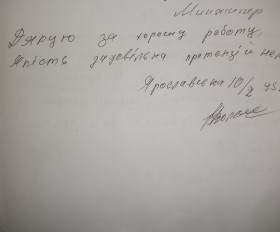 Дякую за хорошу роботу
Якість задовільна претензій нем
Ярославська 10/2